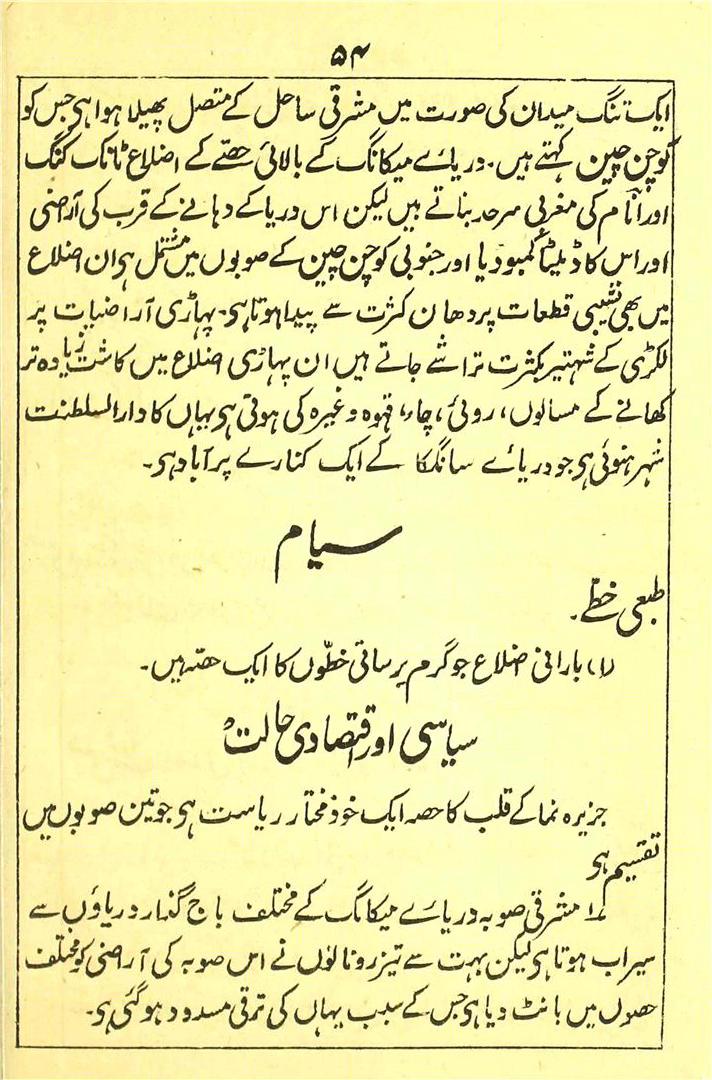 ۵۴
ایک تنگ میدان کی صورت میں مشرقی ساحل کے متصل پھیلا ہوا ہی جس کو
کوچن چین کہتے ہیں۔ دریاے میکانگ کے بالائی حصّے کے اضلاع ٹانک کنگ
اور انّام کی مغربی سرحد بناتے ہیں لیکن اس دریا کے دہانے کے قرب کی آراضی
اور اس کا ڈیلٹا کمبوڈیا اور جنوبی کوچن چین کے صوبوں میں مشتمل ہی ان اضلاع
میں بھی نشیبی قطعات پر دھان کثرت سے پیدا ہوتا ہی۔ پہاڑی آراضیات پر
لکڑی کے شہتیر بکثرت تراشے جاتے ہیں ان پہاڑی اضلاع میں کاشت زیادہ تر
کھانے کے مسالوں، روئی، چاء، قہوہ وغیرہ کی ہوتی ہی یہاں کا دارالسلطنت
شہر ہنوئی ہی جو دریاے سانگکا کے ایک کنارے پر آباد ہی۔
سیام
طبعی خطّے۔
(۱) بارانی اضلاع جو گرم برساتی خطّوں کا ایک حصّہ ہیں۔
سیاسی اور اقتصادی حالت
جزیرہ نما کے قلب کا حصہ ایک خود مختار ریاست ہی جو تین صوبوں میں
تقسیم ہی
۱؎ مشرقی صوبہ دریاے میکانگ کے مختلف باج گذار دریاؤں سے
سیراب ہوتا ہی لیکن بہت سے تیز رو نالوں نے اس صوبہ کی آراضی کو مختلف
حصوں میں بانٹ دیا ہی جس کے سبب یہاں کی ترقی مسدود ہو گئی ہی۔